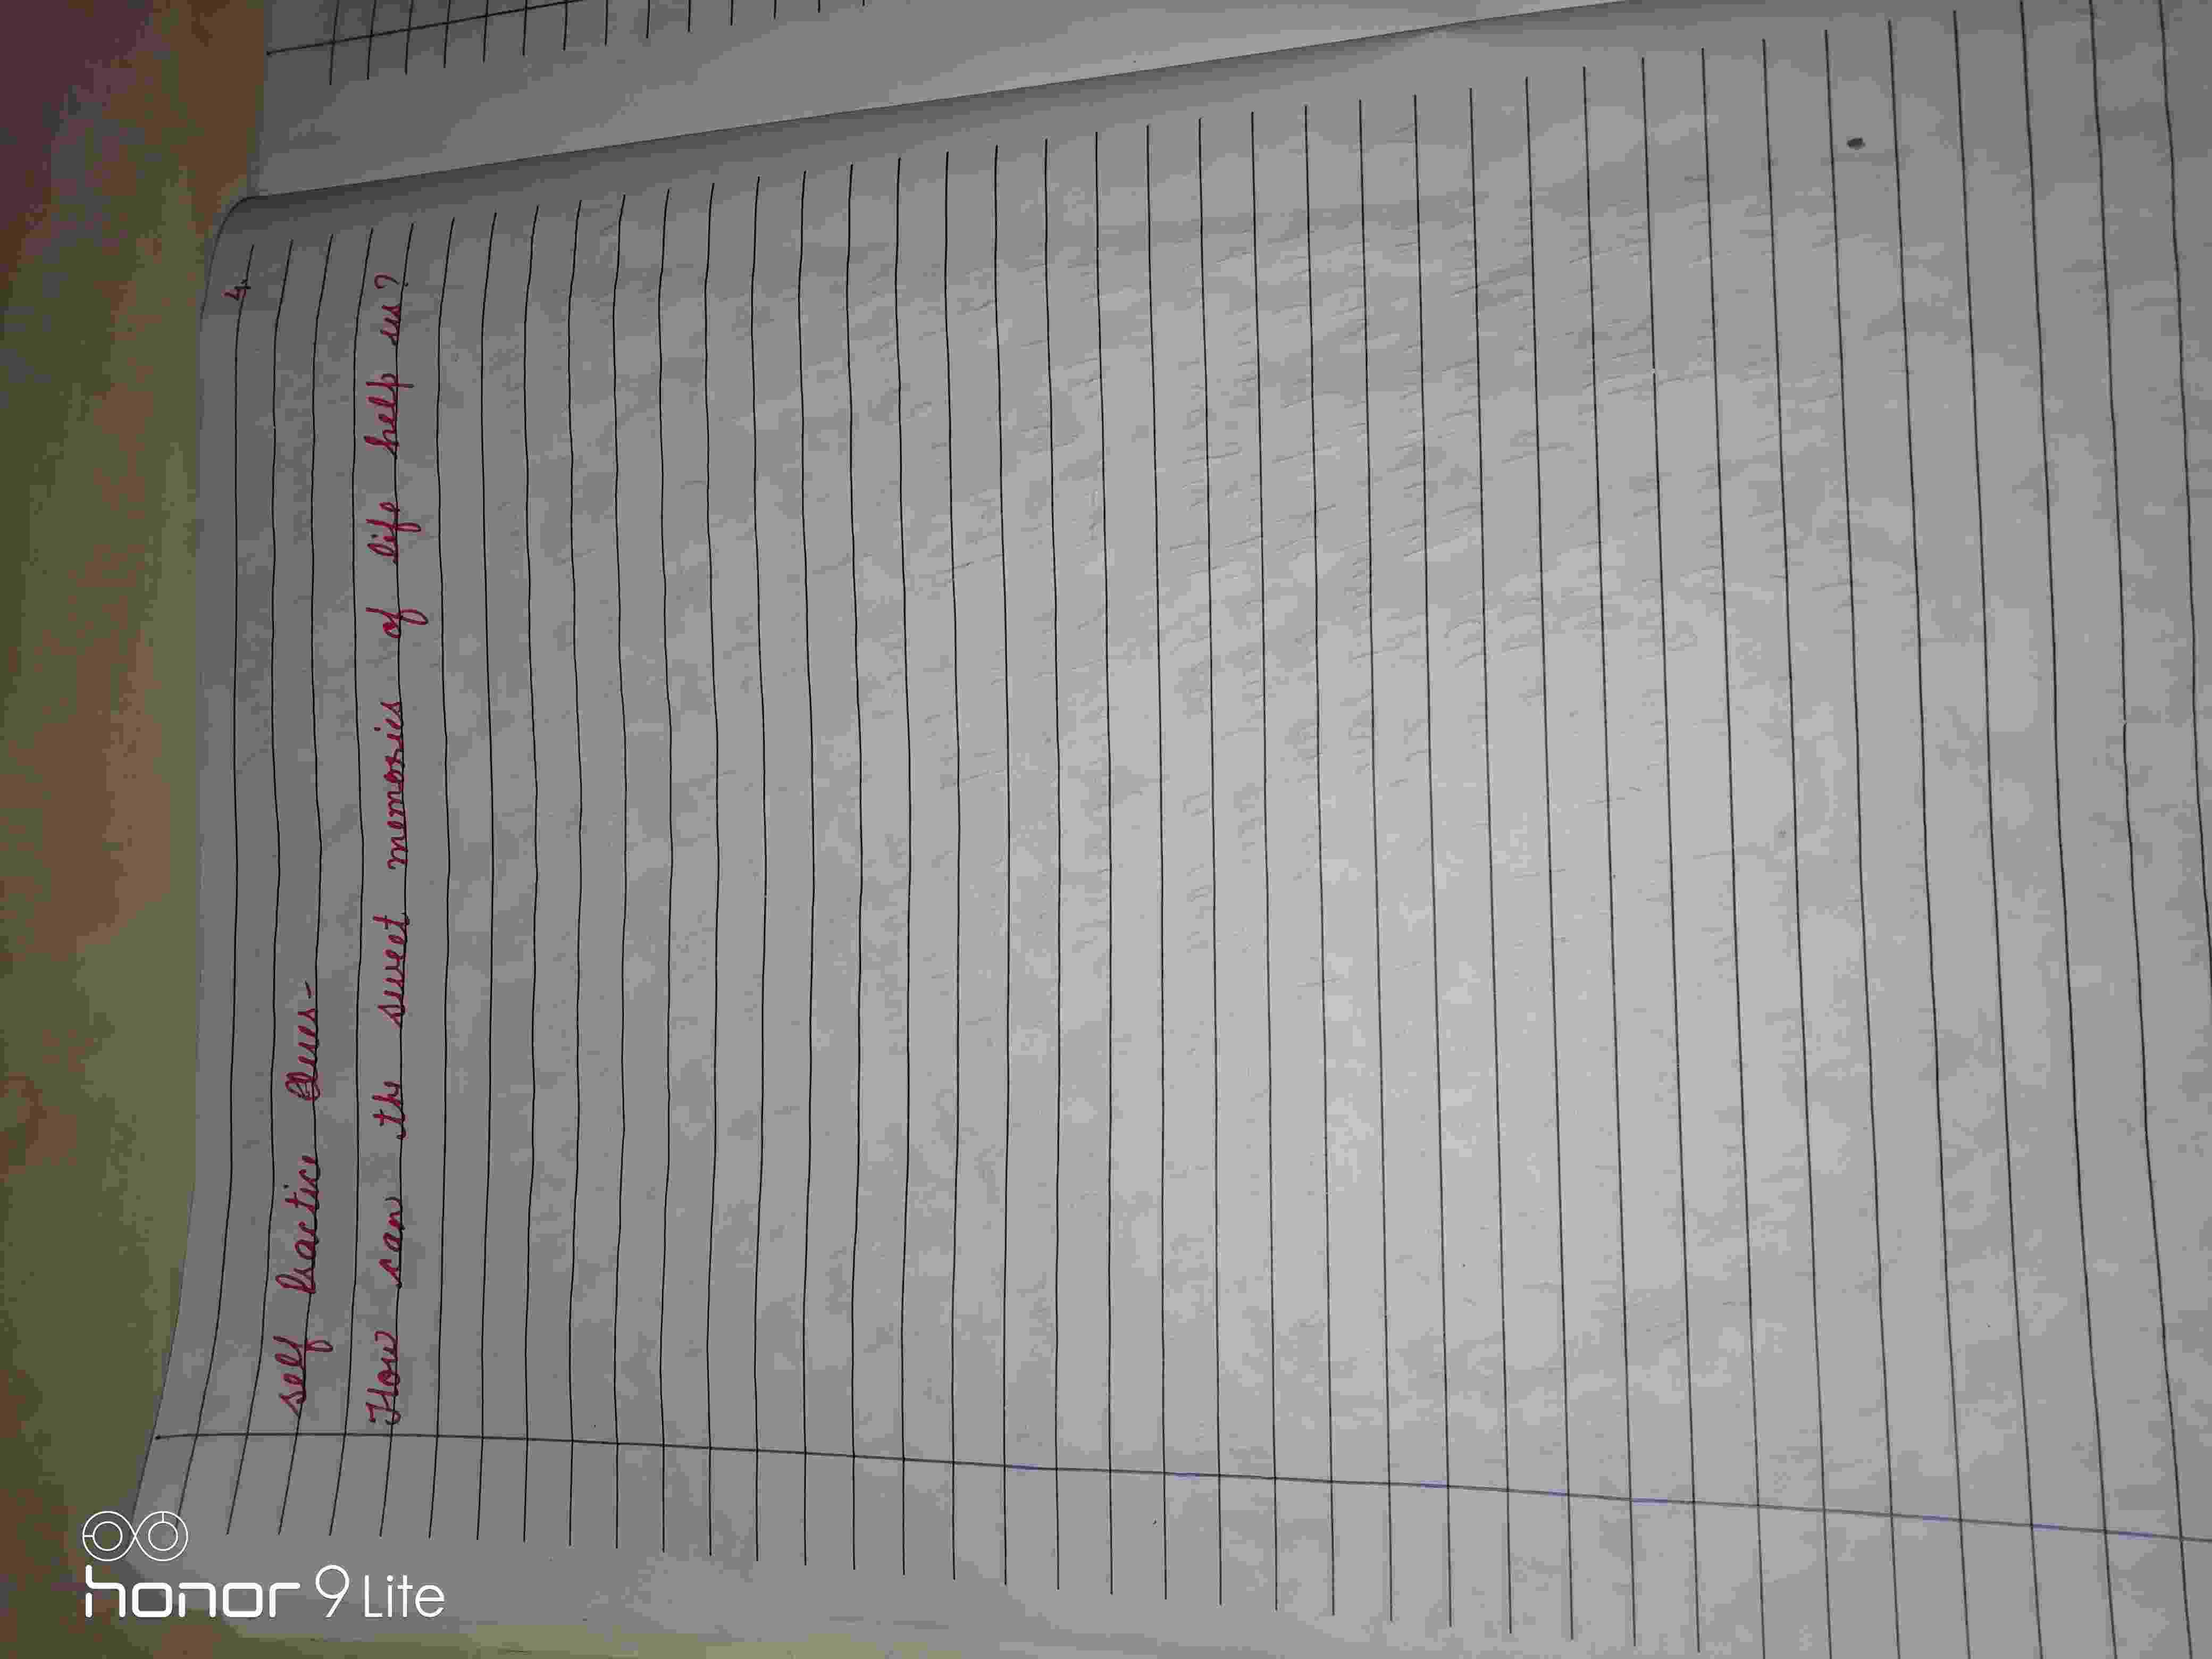 4.
self Practice Ques-
How can the sweet memories of life help us?
honor 9 Lite